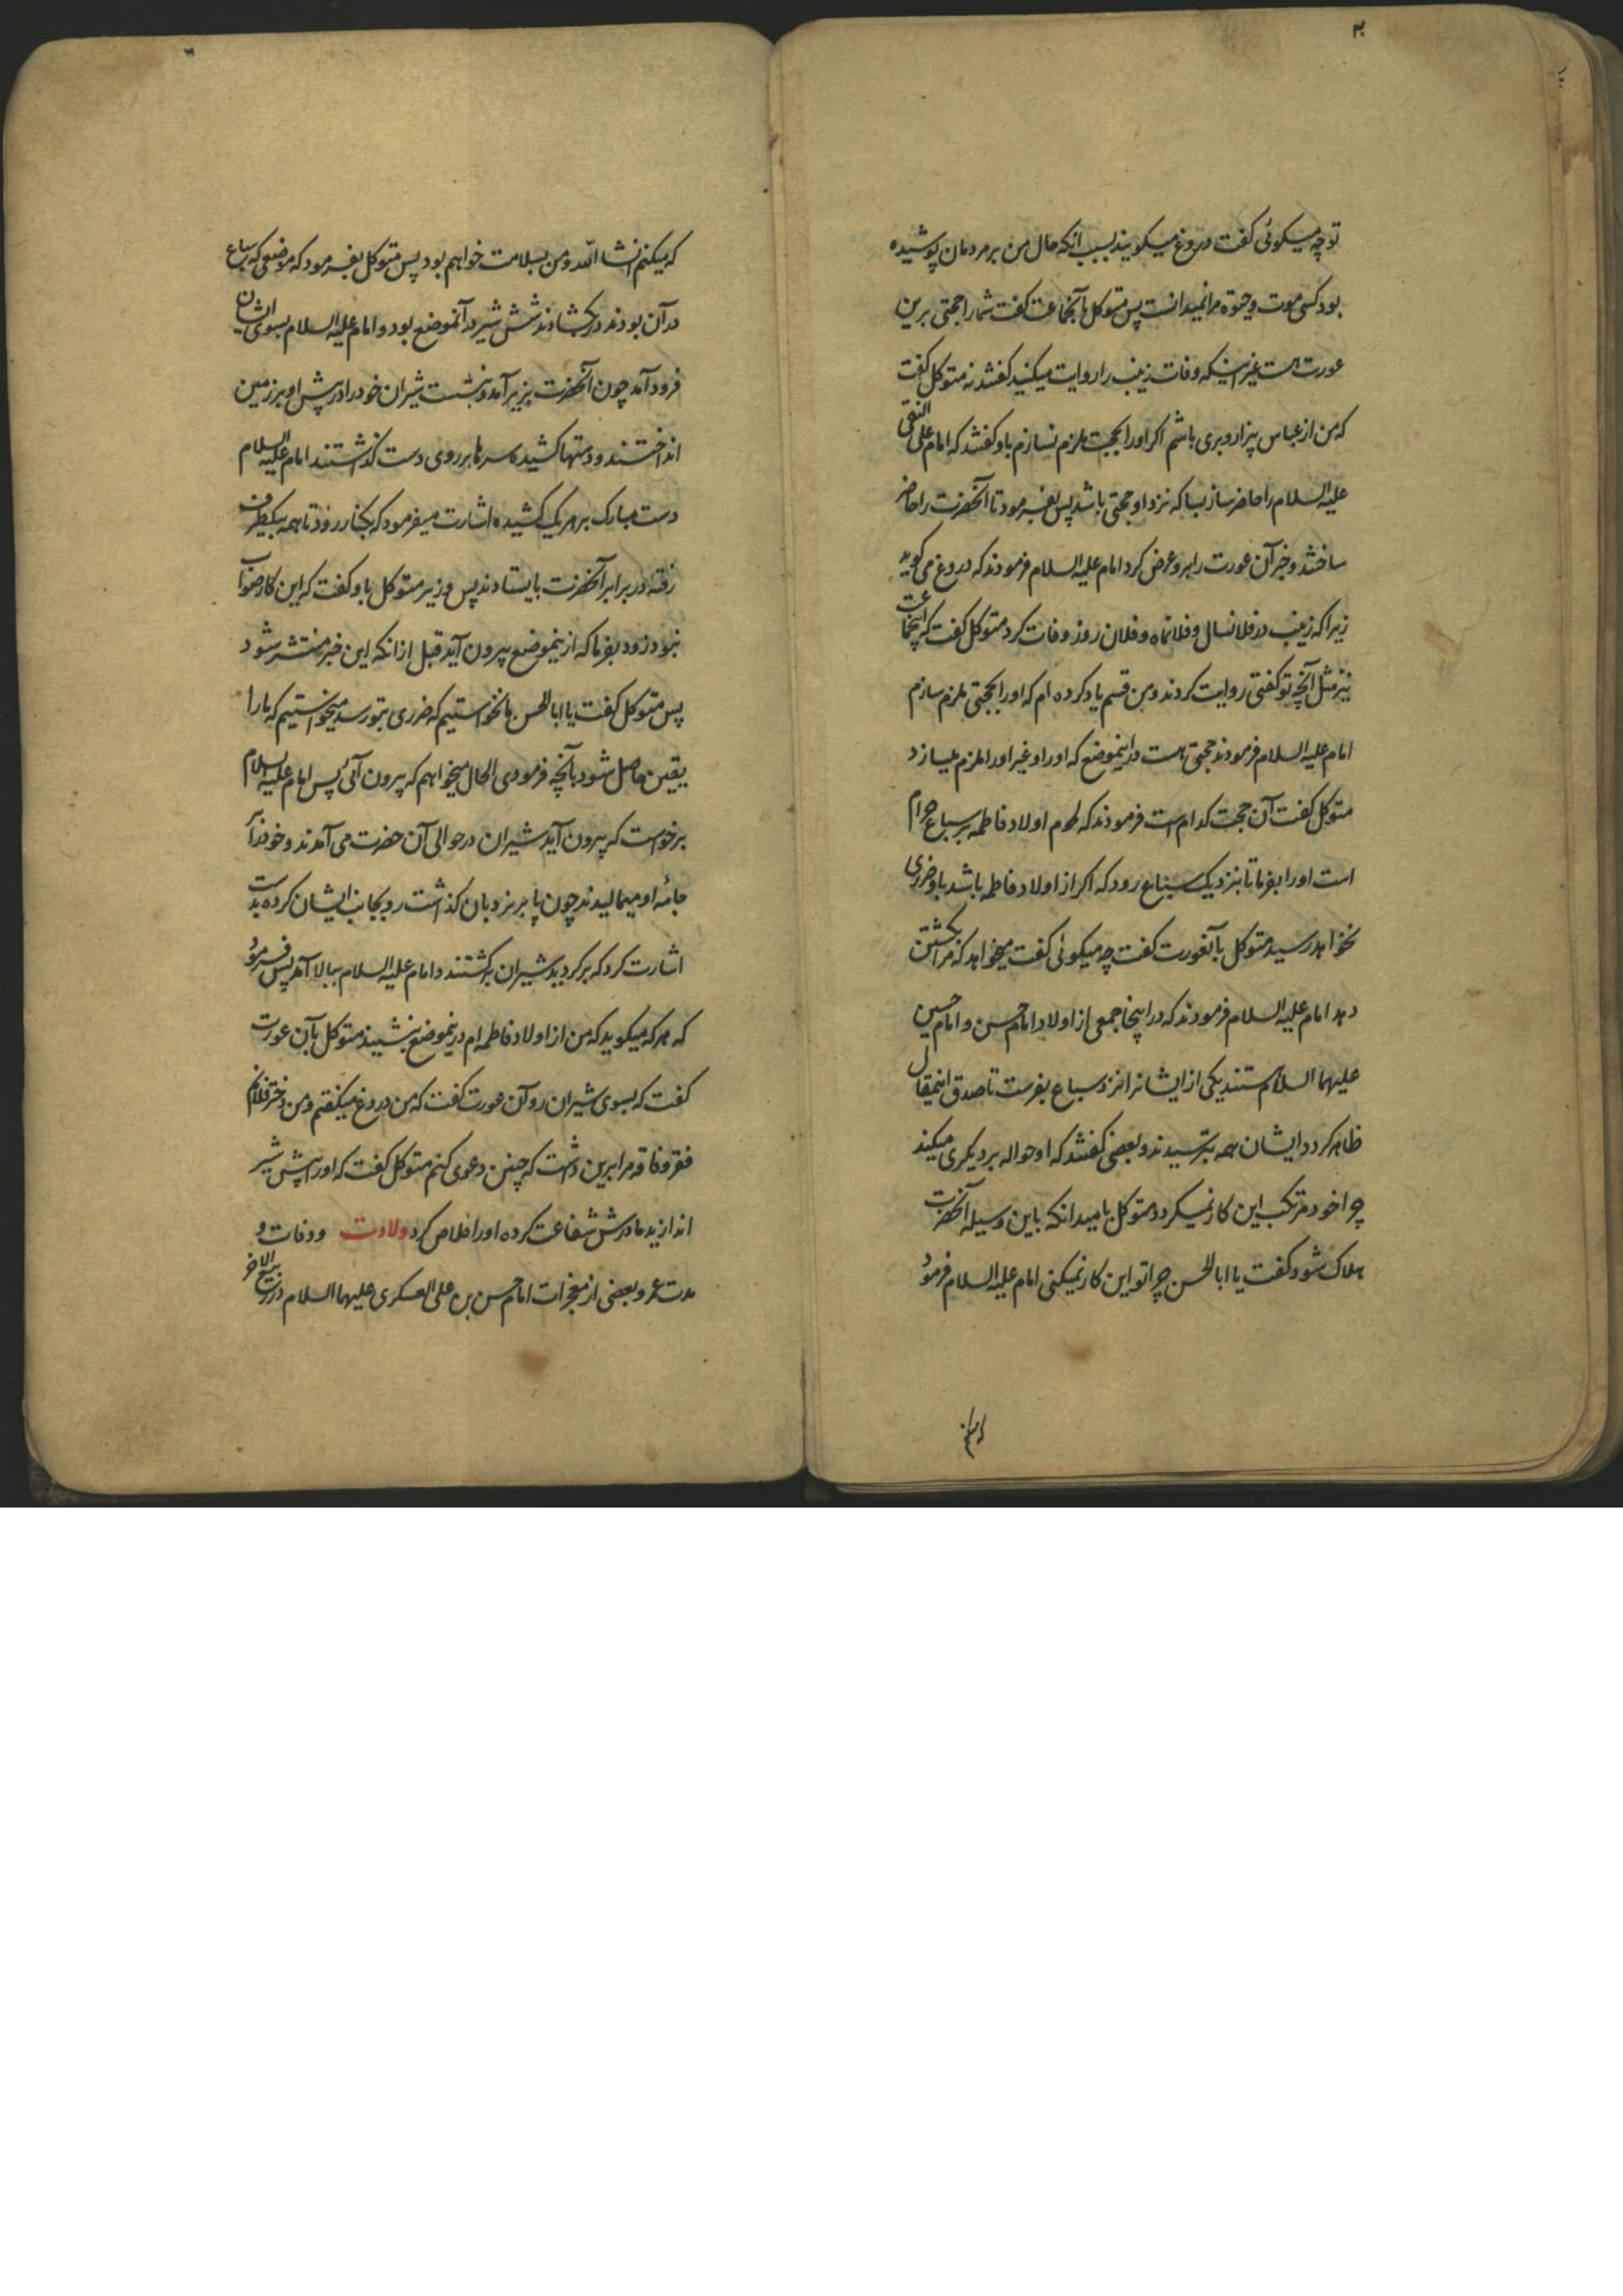 تو چه میکوئی کفت دروغ میکویند بسبب انکه حال من بر مردمان پوشیده
بود کسی موت و حیوة مرا نمیدانست پس متوکل بآنجماعت کفت شما را حجتی برین
عورت هست غیر اینکه وفات زینب را روایت میکنید کفتند نه متوکل کفت
که من از عباس بیزار و بری باشم اکر او را بحجت ملزم نسازم باو کفتند که امام علی النقی
علیه السلام را حاضر ساز بسا که نزد او حجتی باشد پس بفرمود تا آنحضرت را حاضر
ساختند و خبر آن عورت را برو عرض کرد امام علیه السلام فرمودند که دروغ می کوید
زیرا که زینب در فلانسال و فلانماه و فلان روز وفات کرد متوکل کفت که اینجماعت
نیز مثل آنچه تو کفتی روایت کردند و من قسم یاد کرده ام که او را بحجتی ملزم سازم
امام علیه السلام فرمودند حجتی هست در اینموضع که او را و غیر او را ملزم میسازد
متوکل کفت آن حجت کدام است فرمودند که لحوم اولاد فاطمه بر سباع حرام
است او را بفرما تا بنزدیک سباع رود که اکر از اولاد فاطمه باشد باو ضرری
نخواهد رسید متوکل بآنعورت کفت چه میکوئی کفت میخواهد که مرا بکشتن
دهد امام علیه السلام فرمودند که در اینجا جمعی از اولاد امام حسن و امام حسین
علیهما السلام هستند یکی از ایشانرا نزد سباع بفرست تا صدق اینمقال
ظاهر کردد ایشان همه بترسیدند و بعضی کفتند که او حواله بر دیکری میکند
چرا خود مرتکب این کار نمیکردد متوکل بامید انکه باین وسیله آنحضرت
هلاک شود کفت یا ابا الحسن چرا تو این کار نمیکنی امام علیه السلام فرمود
که میکنم
که میکنم انشا الله و من بسلامت خواهم بود پس متوکل بفرمود که موضعی که سباع
در آن بودند در بکشادند شش شیر در آنموضع بود و امام علیه السلام بسوی ایشان
فرود آمد چون آنحضرت بزیر آمد و بنشست شیران خود را در پیش او بر زمین
انداختند و دستها کشیده سرها بر روی دست کذاشتند امام علیه السلام
دست مبارک بر هر یک کشیده اشارت میفرمود که بکنار رود تا همه بیکطرف
رفته در برابر آنحضرت بایستادند پس وزیر متوکل باو کفت که این کار صواب
نبود زود بفرما که ازینموضع بیرون آید قبل از انکه این خبر منتشر شود
پس متوکل کفت یا ابا الحسن ما نخواستیم که ضرری بتو رسد میخواستیم که ما را
یقین حاصل شود بآنچه فرمودی الحال میخواهم که بیرون آئی پس امام علیه السلام
برخواست که بیرون آید شیران در حوالی آن حضرت می آمدند و خود را بر
جامه او میمالیدند چون پا بر نردبان کذاشت رو بجانب ایشان کرده بدست
اشارت کرد که برکردید شیران برکشتند و امام علیه السلام ببالا آمد پس فرمود
که هر که میکوید که من از اولاد فاطمه ام درینموضع بنشیند متوکل بآن عورت
کفت که بسوی شیران رو آن عورت کفت که من دروغ میکفتم و من دختر فلانم
فقر و فاقه مرا برین داشت که چنین دعوی کنم متوکل کفت که او را پیش شیر
اندازید مادرش شفاعت کرده او را خلاص کرد ولادت و وفات و
مدت عمر و بعضی از معجزات امام حسن بن علی العسکری علیهما السلام در ربیع الاخر